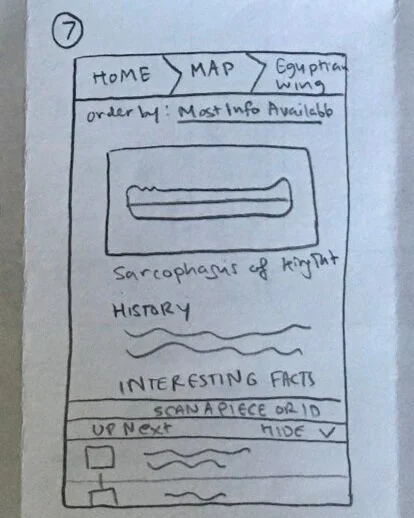 7
HOME > MAP > Eguptian wing
order by: Most Info Availabb
Sarcophagus of King Tut
HISTORY
INTERESTING FACTS
SCAN A PIECE OR ID
UP Next HIDE